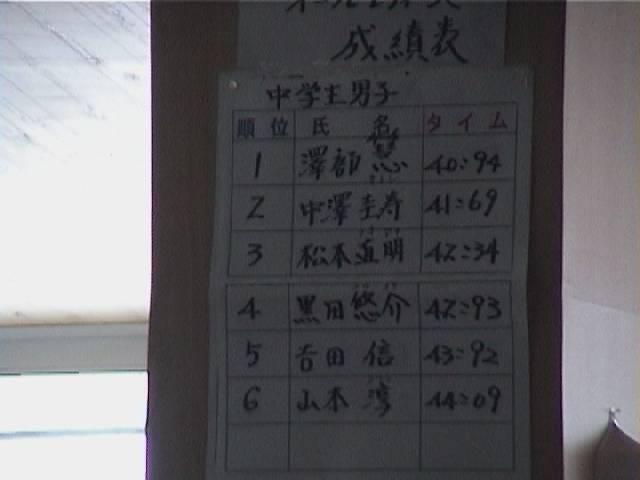 成績表
中学生男子
順位 氏名 タイム
1 澤部 40:94
2 中澤圭寿 41:69
3 松本直明 42:34
4 黒田悠介 42:93
5 吉田 信 43:92
6 山本 44:09